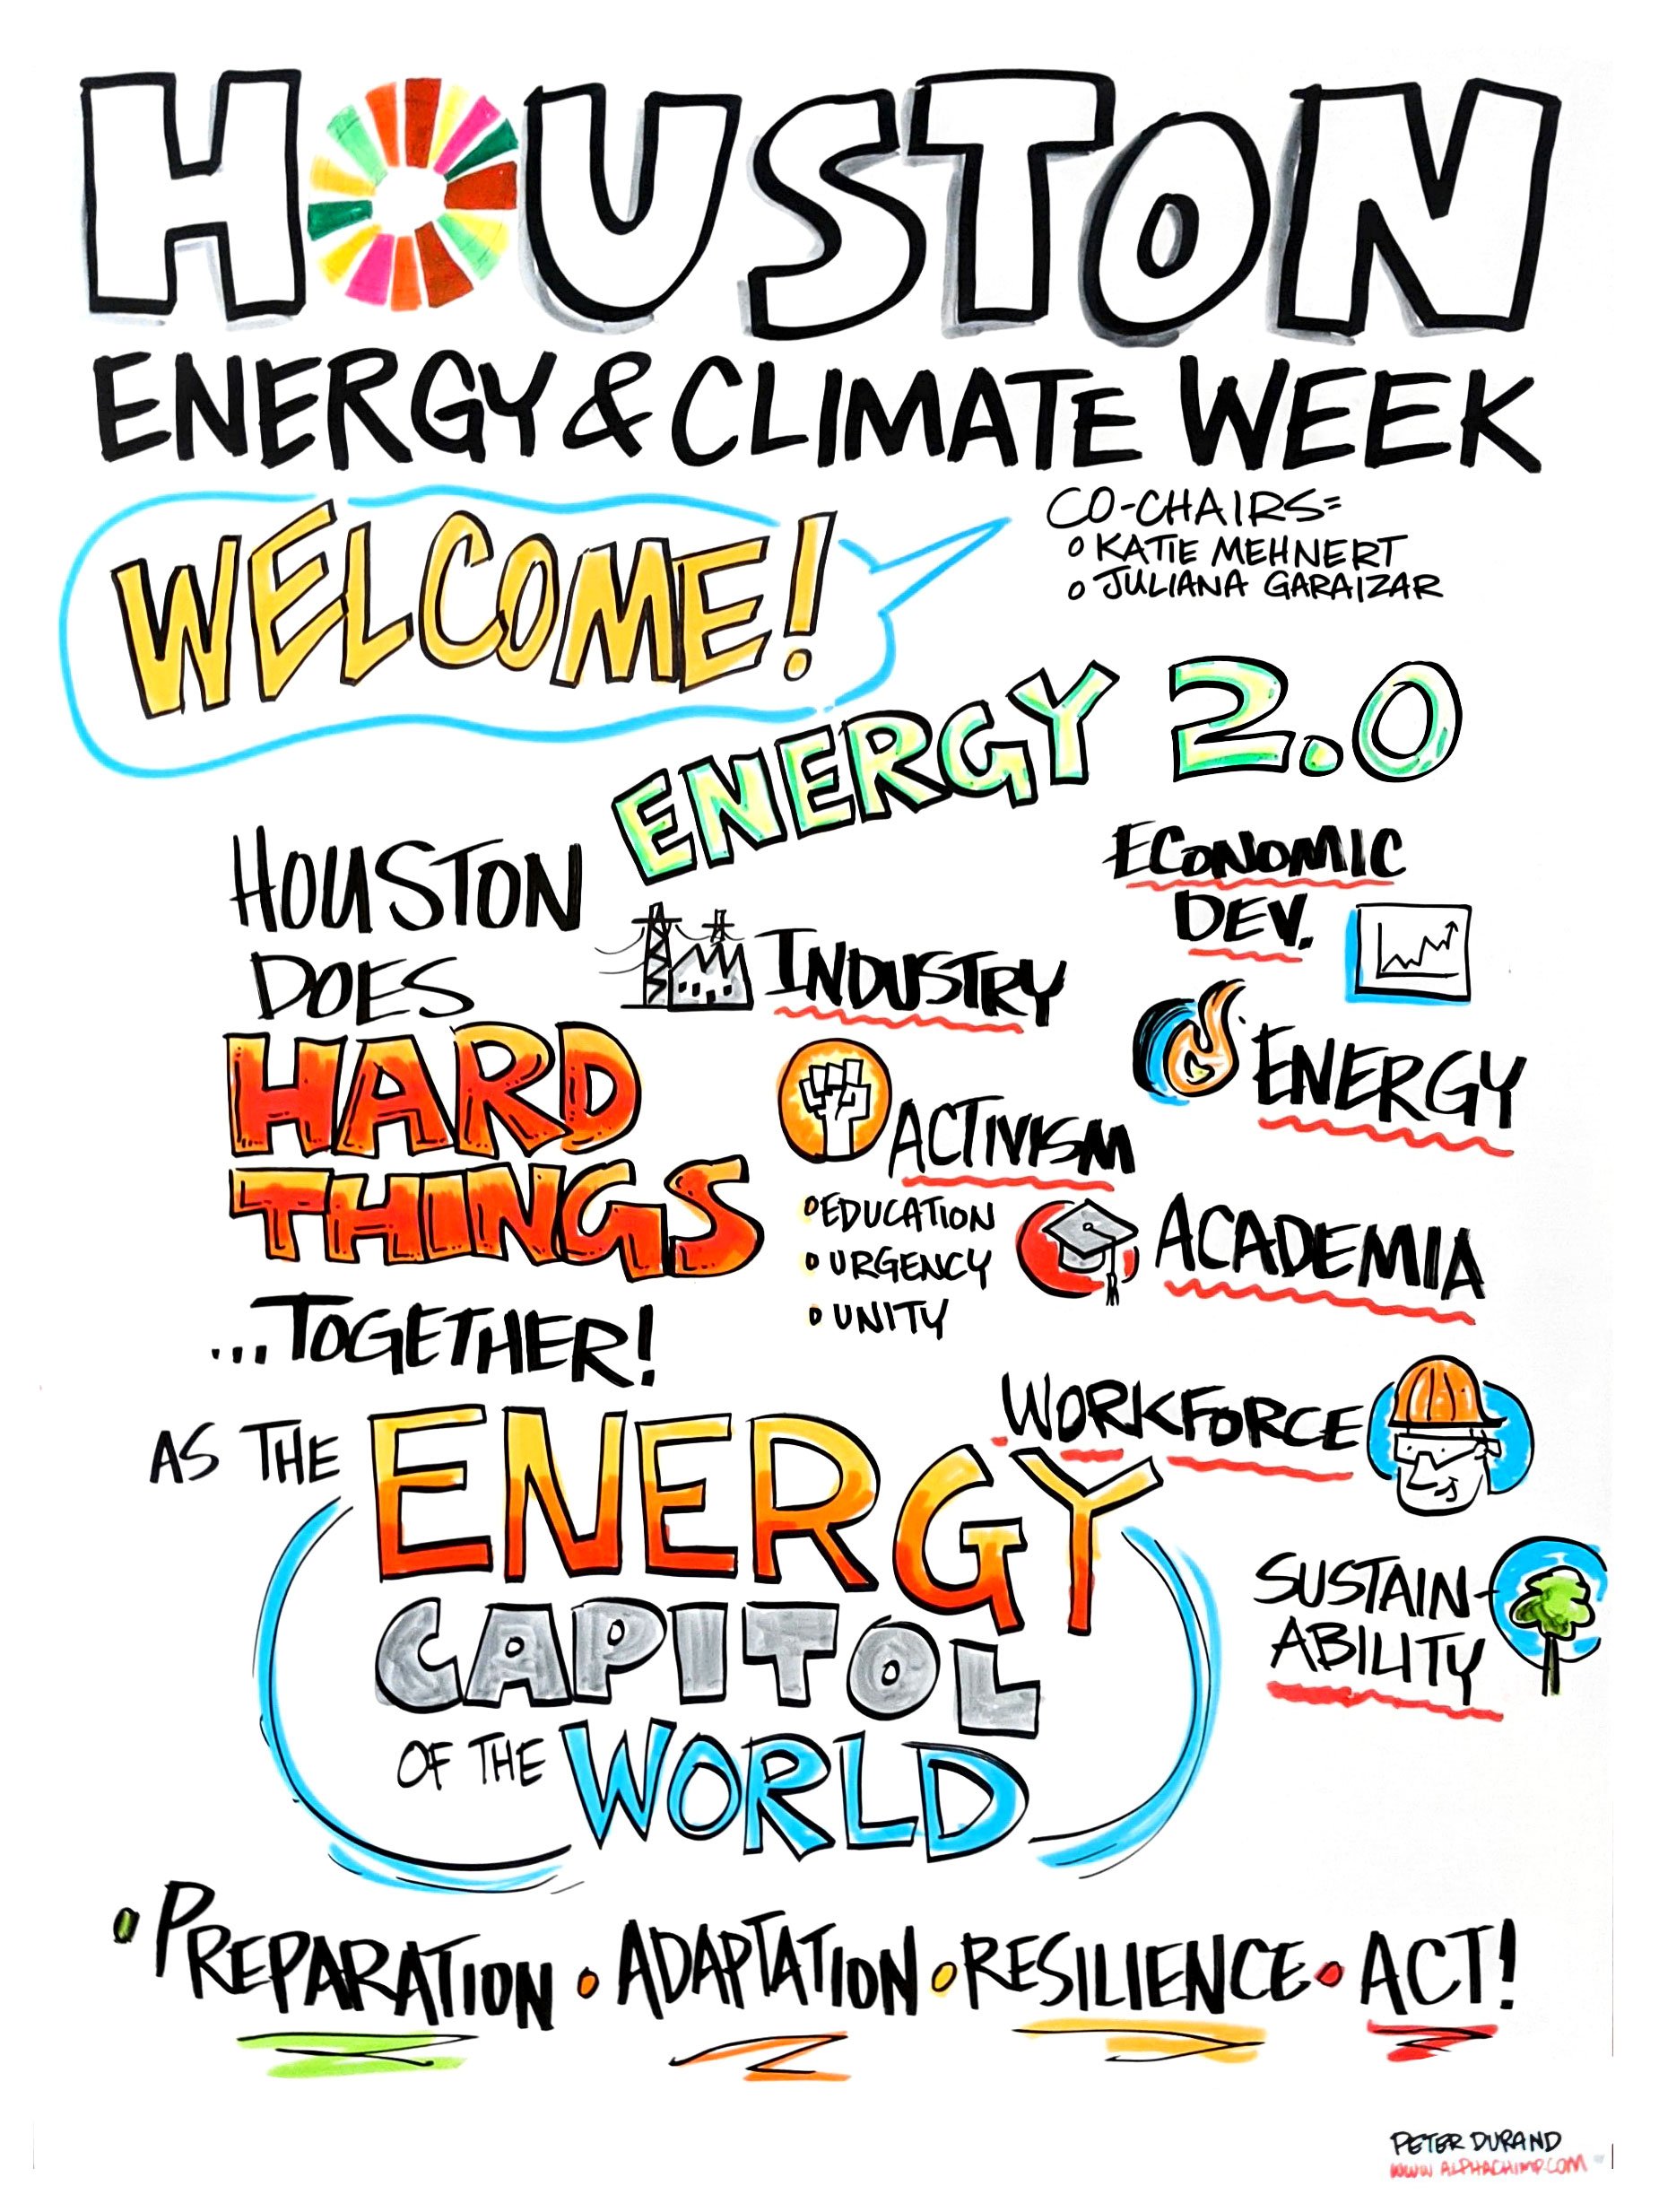 HOUSTON
ENERGY & CLIMATE WEEK
WELCOME!
CO-CHAIRS=
KATIE MEHNERT
JULIANA GARAIZAR
ENERGY 2.0
HOUSTON
DOES
HARD
THINGS
...TOGETHER!
INDUSTRY
ECONOMIC
DEV.
ENERGY
ACTIVISM
EDUCATION
URGENCY
UNITY
ACADEMIA
WORKFORCE
SUSTAIN-
ABILITY
AS THE ENERGY
CAPITOL
OF THE WORLD
• PREPARATION • ADAPTATION • RESILIENCE • ACT!
PETER DURAND
WWW.ALPHACHIMP.COM